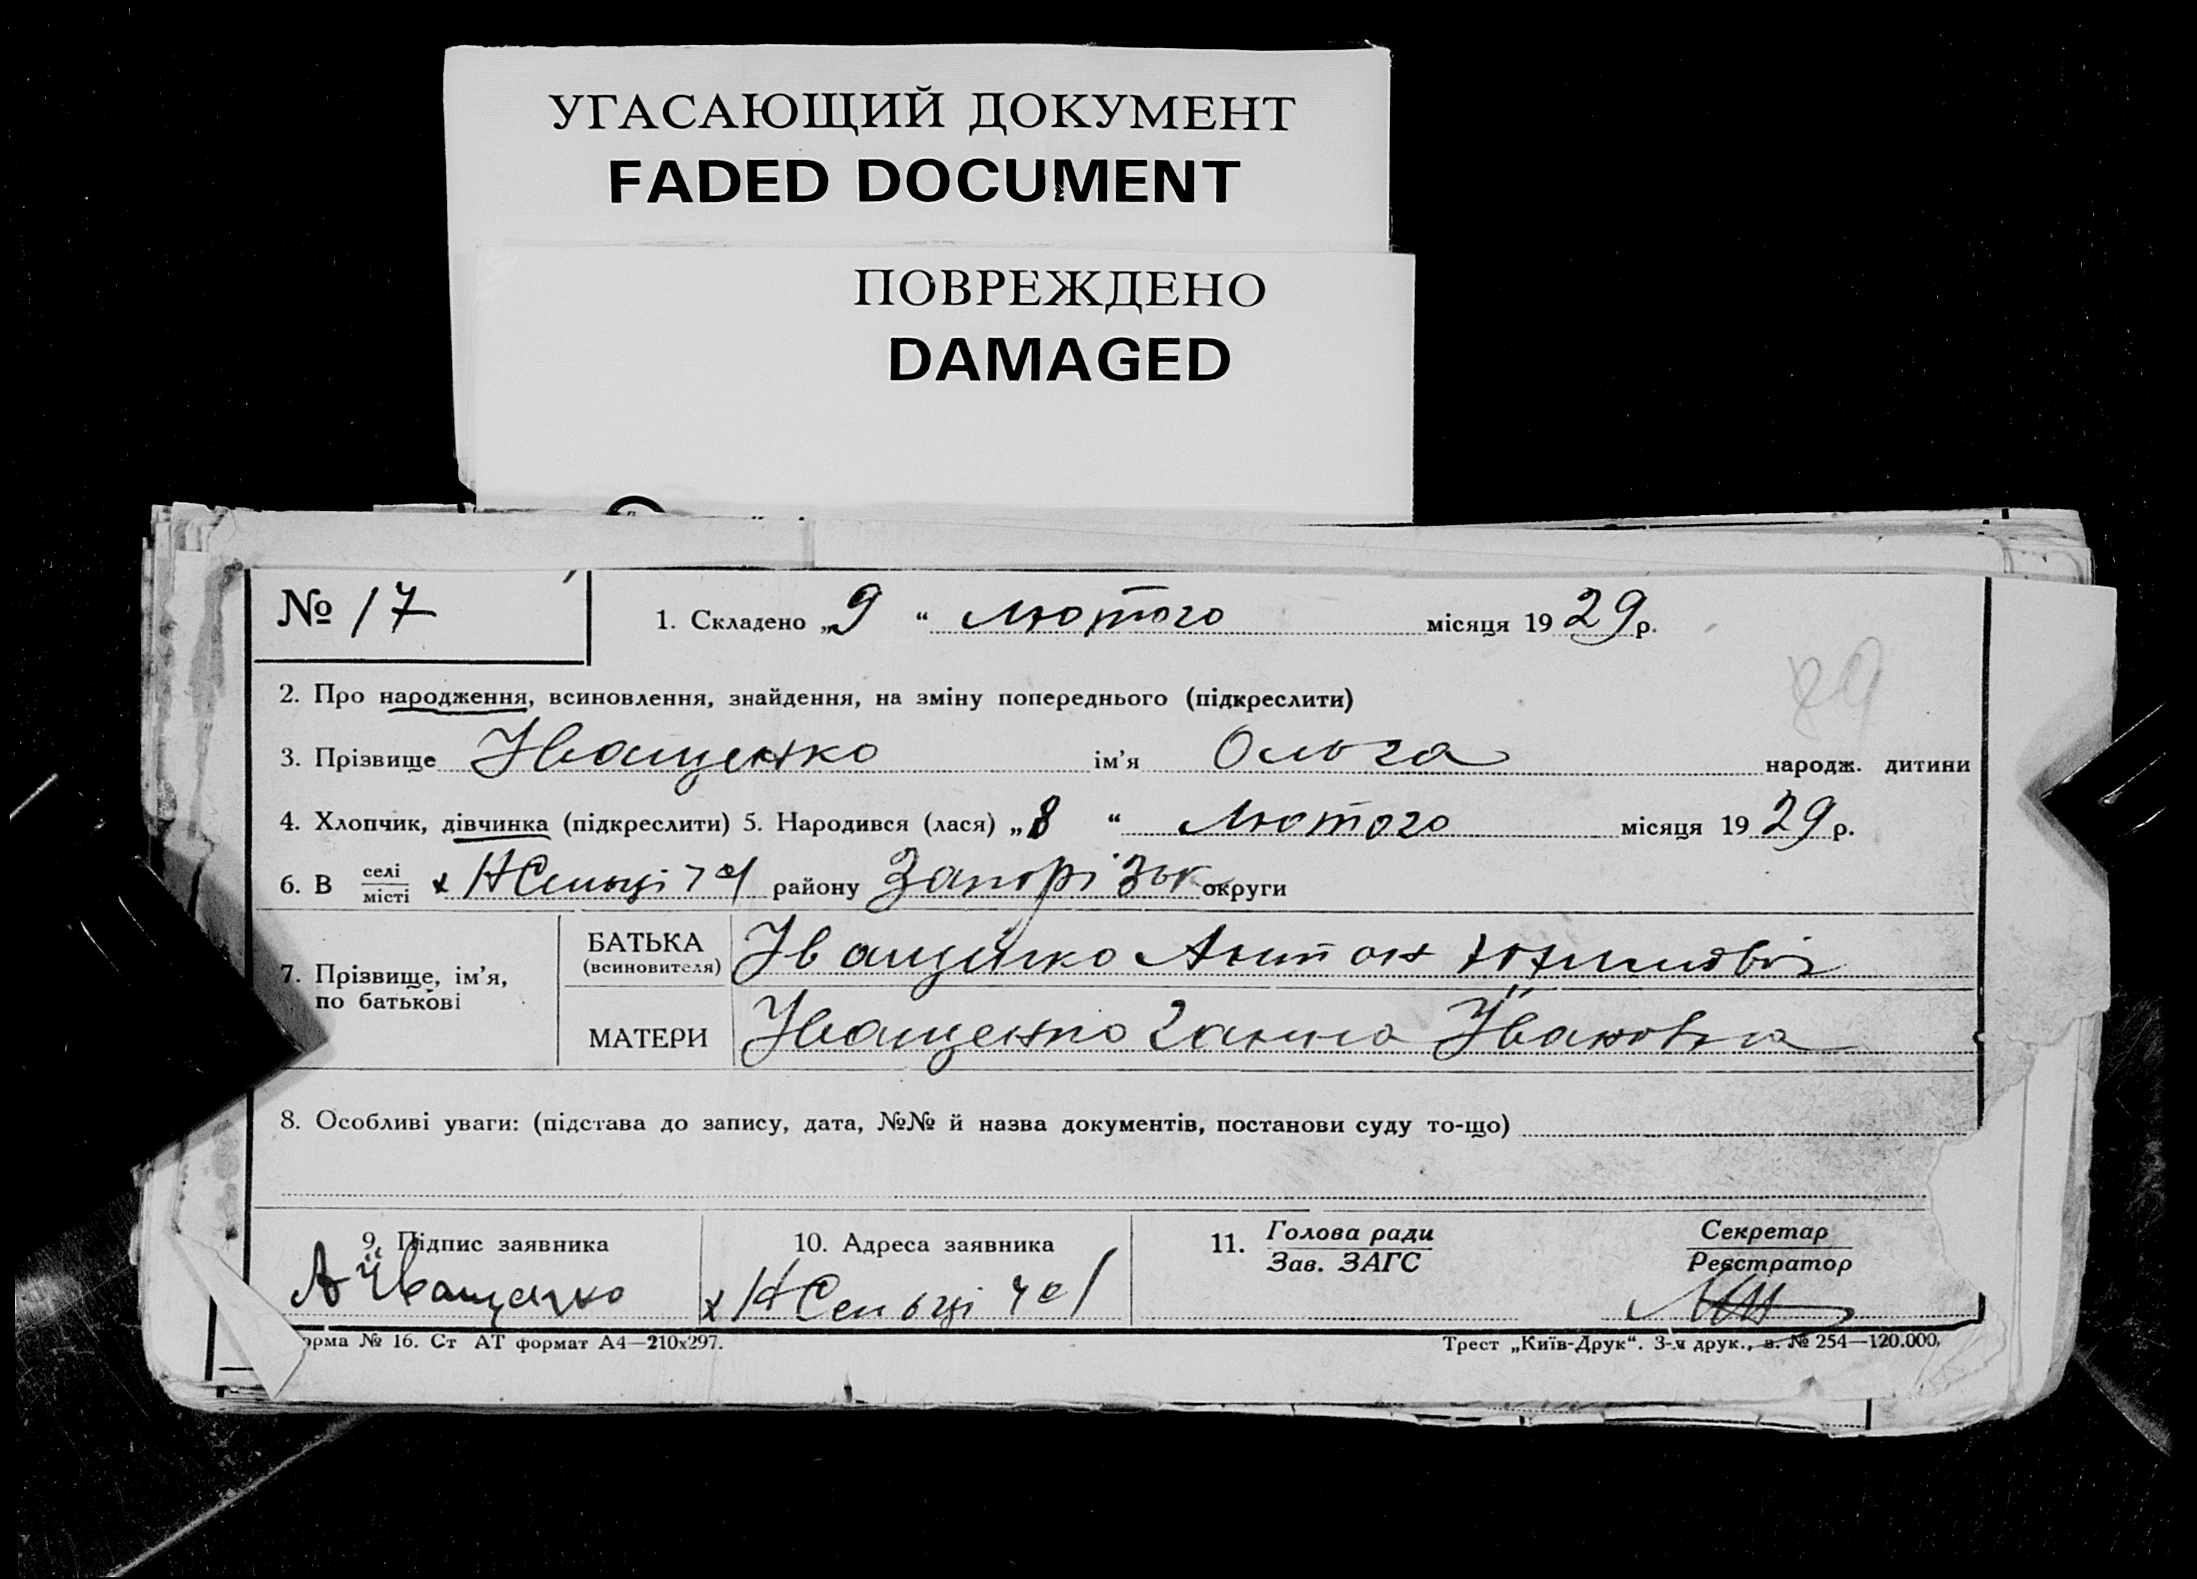 УГАСАЮЩИЙ ДОКУМЕНТ
FADED DOCUMENT
ПОВРЕЖДЕНО
DAMAGED
№ 17 1. Складено „9“ лютого місяця 1929 р.
29
2. Про народження, всиновлення, знайдення, на зміну попереднього (підкреслити)
3. Прізвище Іващенко ім'я Ольга народж. дитини
4. Хлопчик, дівчинка (підкреслити) 5. Народився (лася) „8“ лютого місяця 1929 р.
6. В селі/місті х району Запорізьк округи
7. Прізвище, ім'я, по батькові
БАТЬКА (всиновителя) Іващенко Антон
МАТЕРИ Іващенко Ганна Ївановна
8. Особливі уваги: (підстава до запису, дата, №№ й назва документів, постанови суду то-що)
9. Підпис заявника 10. Адреса заявника 11. Голова ради/Зав. ЗАГС Секретар/Реєстратор
А Їващенко х
орма № 16. Ст АТ формат А4—210х297. Трест „Київ-Друк“. 3-я друк., з. № 254—120.000.